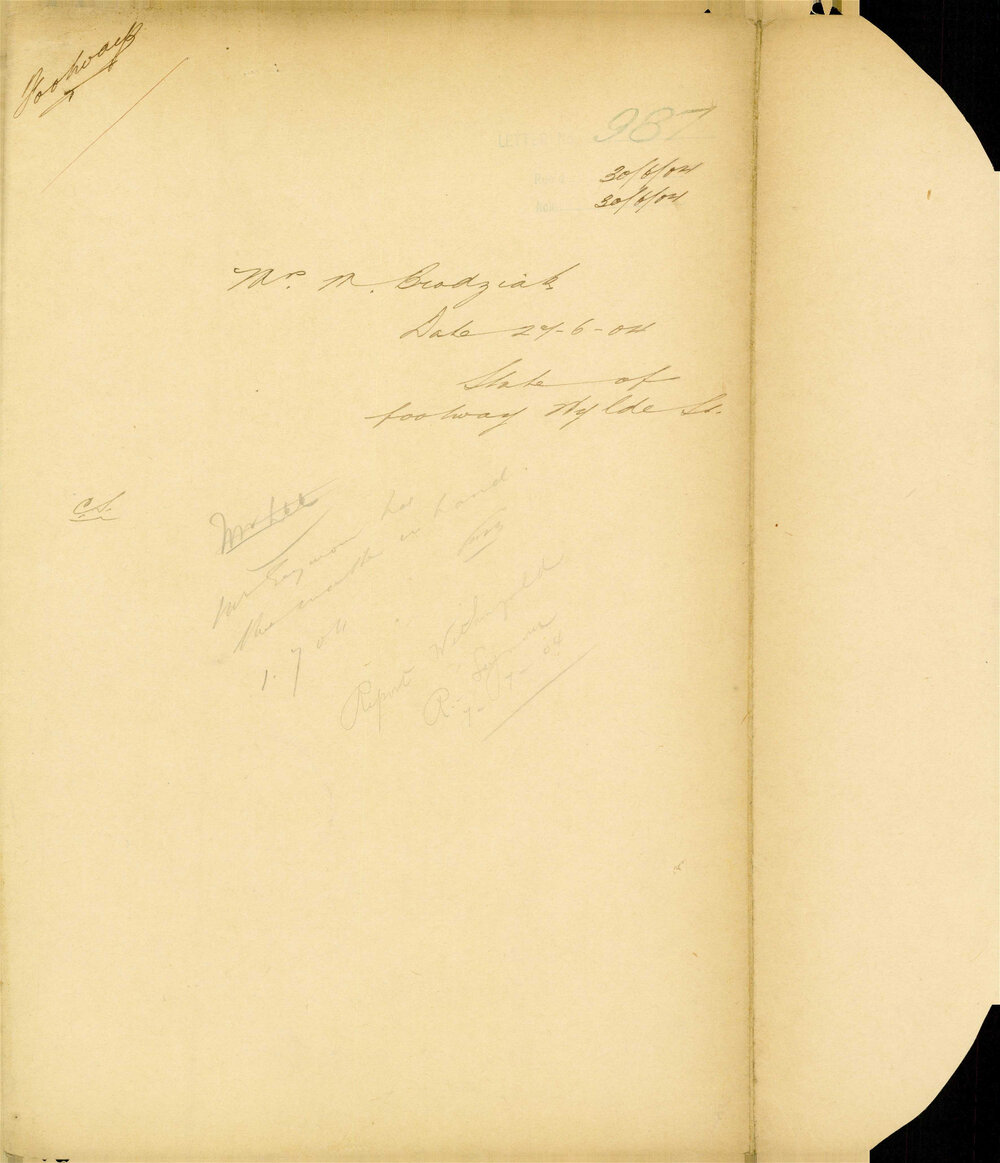 Footways
LETTER No. 987
Rec'd 30/6/04
30/6/04
Mr. M. Brodziak
Date 27-6-04
State of
footway Wylde St.
C.S.
Mr Lee
Mr Seymour has
the matter in hand.
1.7.04
Report Withheld
R. Seymour
7-7-04